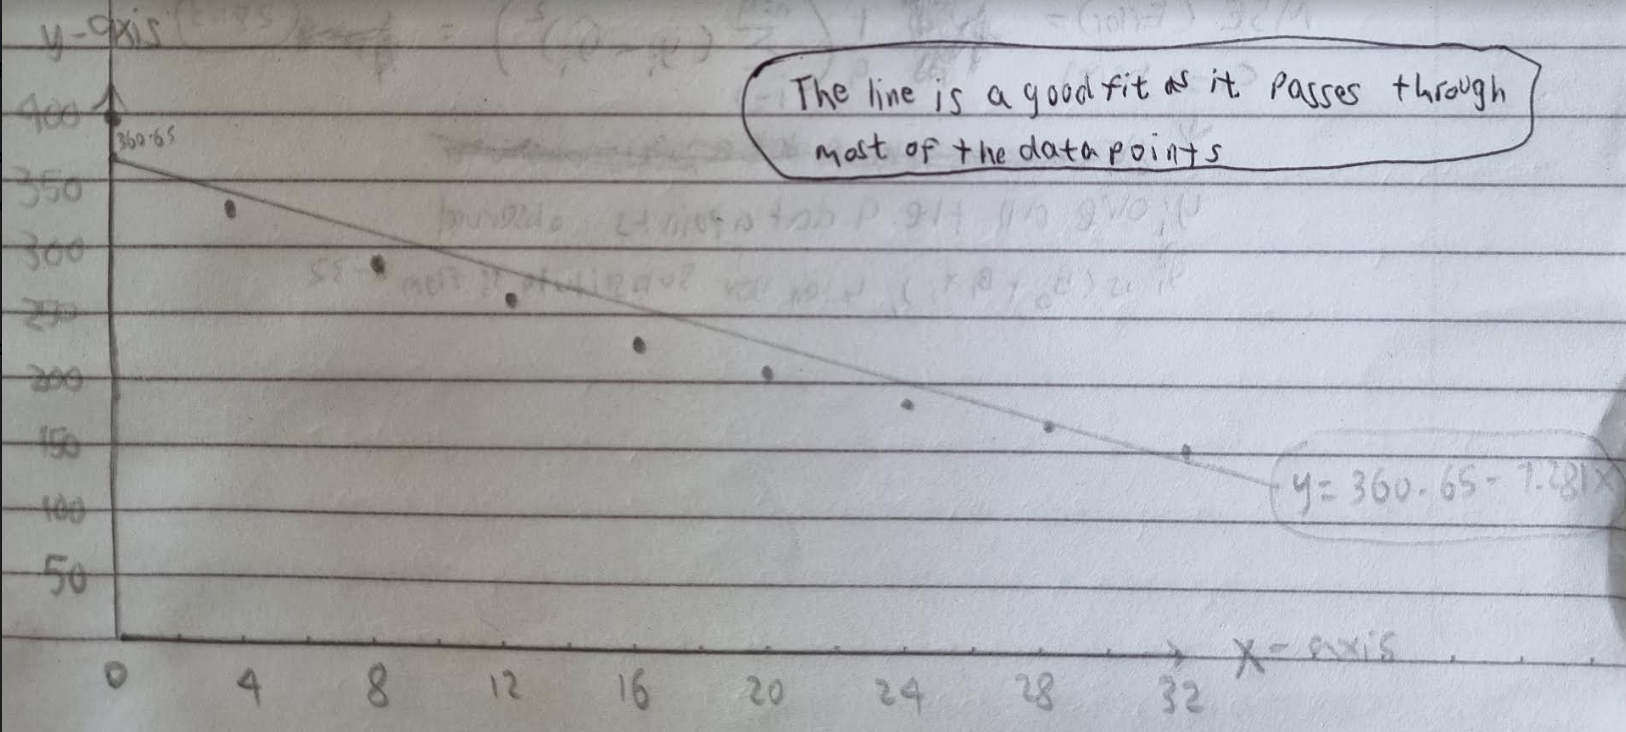 y-axis
The line is a good fit as it passes through
most of the data points
400
360.65
350
300
250
200
150
y = 360.65 - 7.281x
100
50
x-axis
0 4 8 12 16 20 24 28 32